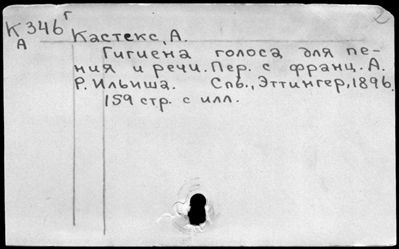 К 346 г
А
Кастекс, А.
Гигиена голоса для пе-
ния и речи. Пер. с франц. А.
Р. Ильиша. Спб., Эттингер, 1896.
159 стр. с илл.
2